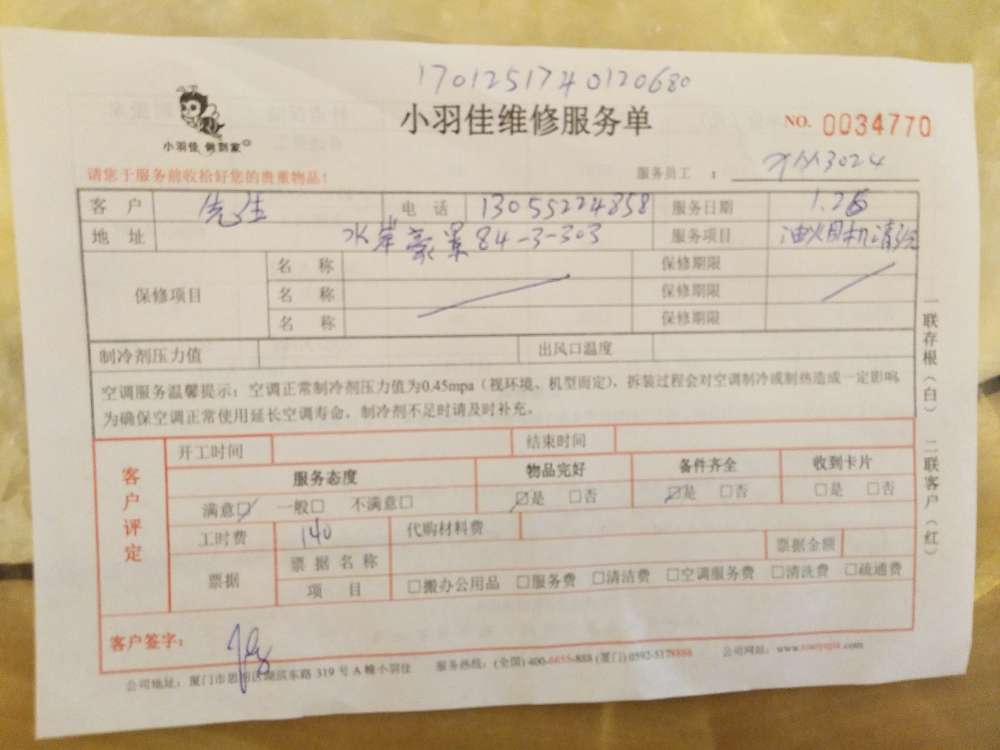 1701251740120680
小羽佳维修服务单
NO. 0034770
小羽佳 俐到家
请您于服务前收拾好您的贵重物品!
服务员工 : 3024
客 户 先生 电 话 13055224858 服务日期 1.26
地 址 水岸豪景84-3-303 服务项目 油烟机清洗
保修项目
名 称 保修期限
名 称 保修期限
名 称 保修期限
制冷剂压力值 出风口温度
空调服务温馨提示:空调正常制冷剂压力值为0.45mpa(视环境、机型而定),拆装过程会对空调制冷或制热造成一定影响,
为确保空调正常使用延长空调寿命,制冷剂不足时请及时补充。
客户评定
开工时间 结束时间
服务态度 物品完好 备件齐全 收到卡片
满意☑ 一般□ 不满意□ ☑是 □否 ☑是 □否 □是 □否
工时费 140 代购材料费
票据 票据名称 票据金额
项 目 □搬办公用品 □服务费 □清洁费 □空调服务费 □清洗费 □疏通费
客户签字:
公司地址:厦门市思明区湖滨东路 319 号 A 幢小羽佳 服务热线:(全国) 400-6655-888 (厦门) 0592-5178888 公司网站:www.xiaoyujia.com
一联存根(白) 二联客户(红)